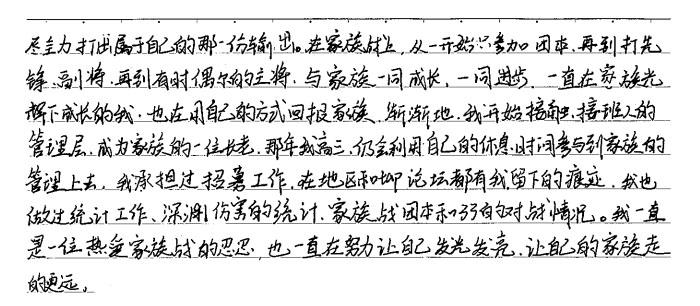 尽全力打出属于自己的那一份输出。在家族战上，从一开始只参加团本，再到打先
锋、副将，再到有时偶尔的主将，与家族一同成长，一同进步，一直在家族光
辉下成长的我，也在用自己的方式回报家族，渐渐地，我开始接触，接班人的
管理层，成为家族的一位长老，那年我高三，仍会利用自己的休息时间参与到家族的
管理上去，我承担过招募工作，在地区和吧论坛都有我留下的痕迹，我也
做过统计工作、深渊伤害的统计、家族战团本和33的对战情况。我一直
是一位热爱家族战的忍忍，也一直在努力让自己发光发亮，让自己的家族走
的更远。